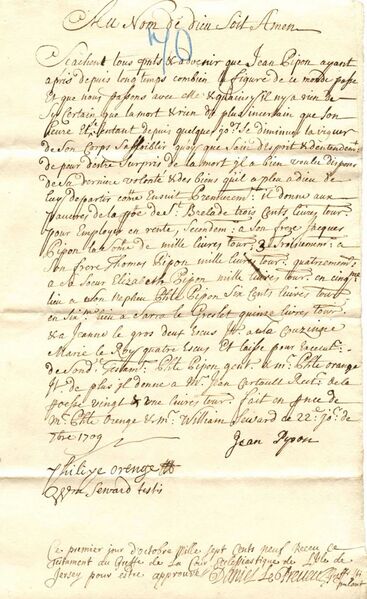 Au Nom de dieu Soit Amen
70
Scachent tous pnts & advenir que Jean Pipon ayant
apris depuis long temps combien la figure de ce monde passe
et que nous passons avec elle & quainsy il ny a rien de
Si Certain que la mort & rien de plus incertain que son
heure Et Sentant depuis quelque Se diminuer la vigueur
de son Corps Saffoiblir quoy que Sain desprit & dentendem
de peur destre Surpris de la mort il a bien voulu disposer
de Sa derniere volonté & des biens qu'il a pleu a dieu de
luy departir coe Ensuit Premierem: il donne aux
pauvres de la poe de St Brelade trois Cents livres tour
pour Employer en rente, Secondem: a Son frere Jacques
Pipon la soe de mille livres tour 3 Troisiement: a
Son frere Thomas Pipon mille livres tour: quatremement:
a Sa Soeur Elizabeth Pipon mille livres tour en cinqme
lieu a Son nepheu Phle Pipon Six Cents livres tour
en Six: lieu a Sara le Greslet quinze livres tour
& a Jeanne le gros deux Escus It a la Couzinge
Marie le Roy quatre Escus Et laisse pour Executr:
de Sond: Testam: Phle Pipon gent & Mr Phle orange
It de plus il donne a Mr Jean Cartault Rectr de la
poesse vingt & une livres tour: fait en pnce de
Mr Phle Orange & Mr William Seward ce 22: jor de
7bre 1709
Jean Pipon
Philipe orenge
Wm Seward testis
Ce premier jour d'octobre Mille Sept Cents neuf Receu ce
Testament du Greffe de La Cour Ecclesiastique de L'Isle de
Jersey pour Estre approuvé Daniel Le Preveu Greffr